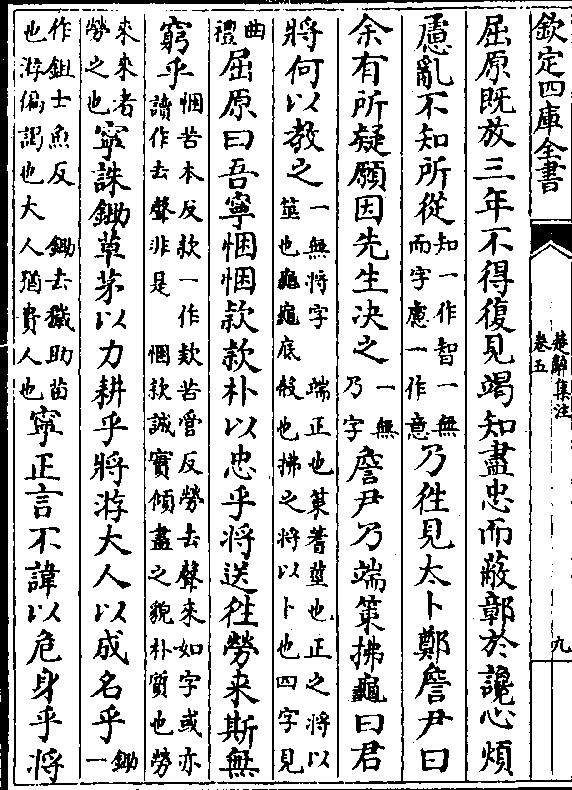 欽定四庫全書
楚辭集注
卷五
九
屈原既放三年不得復見竭知盡忠而蔽鄣於讒心煩
慮亂不知所從
知一作智一無
而字慮一作意
乃往見太卜鄭詹尹曰
余有所疑願因先生决之
一無
乃字
詹尹乃端策拂龜曰君
將何以教之
一無將字 端正也策蓍莖也正之將以
筮也龜龜底殼也拂之將以卜也四字見
曲
禮
屈原曰吾寧悃悃款款朴以忠乎將送徃勞來斯無
窮乎
悃苦本反款一作欵苦管反勞去聲來如字或亦
讀作去聲非是 悃款誠實傾盡之貌朴質也勞
來來者
勞之也
寧誅鋤草茅以力耕乎將游大人以成名乎
鋤
一
作鉏士魚反 鋤去穢助苗
也游徧謁也大人猶貴人也
寧正言不諱以危身乎將